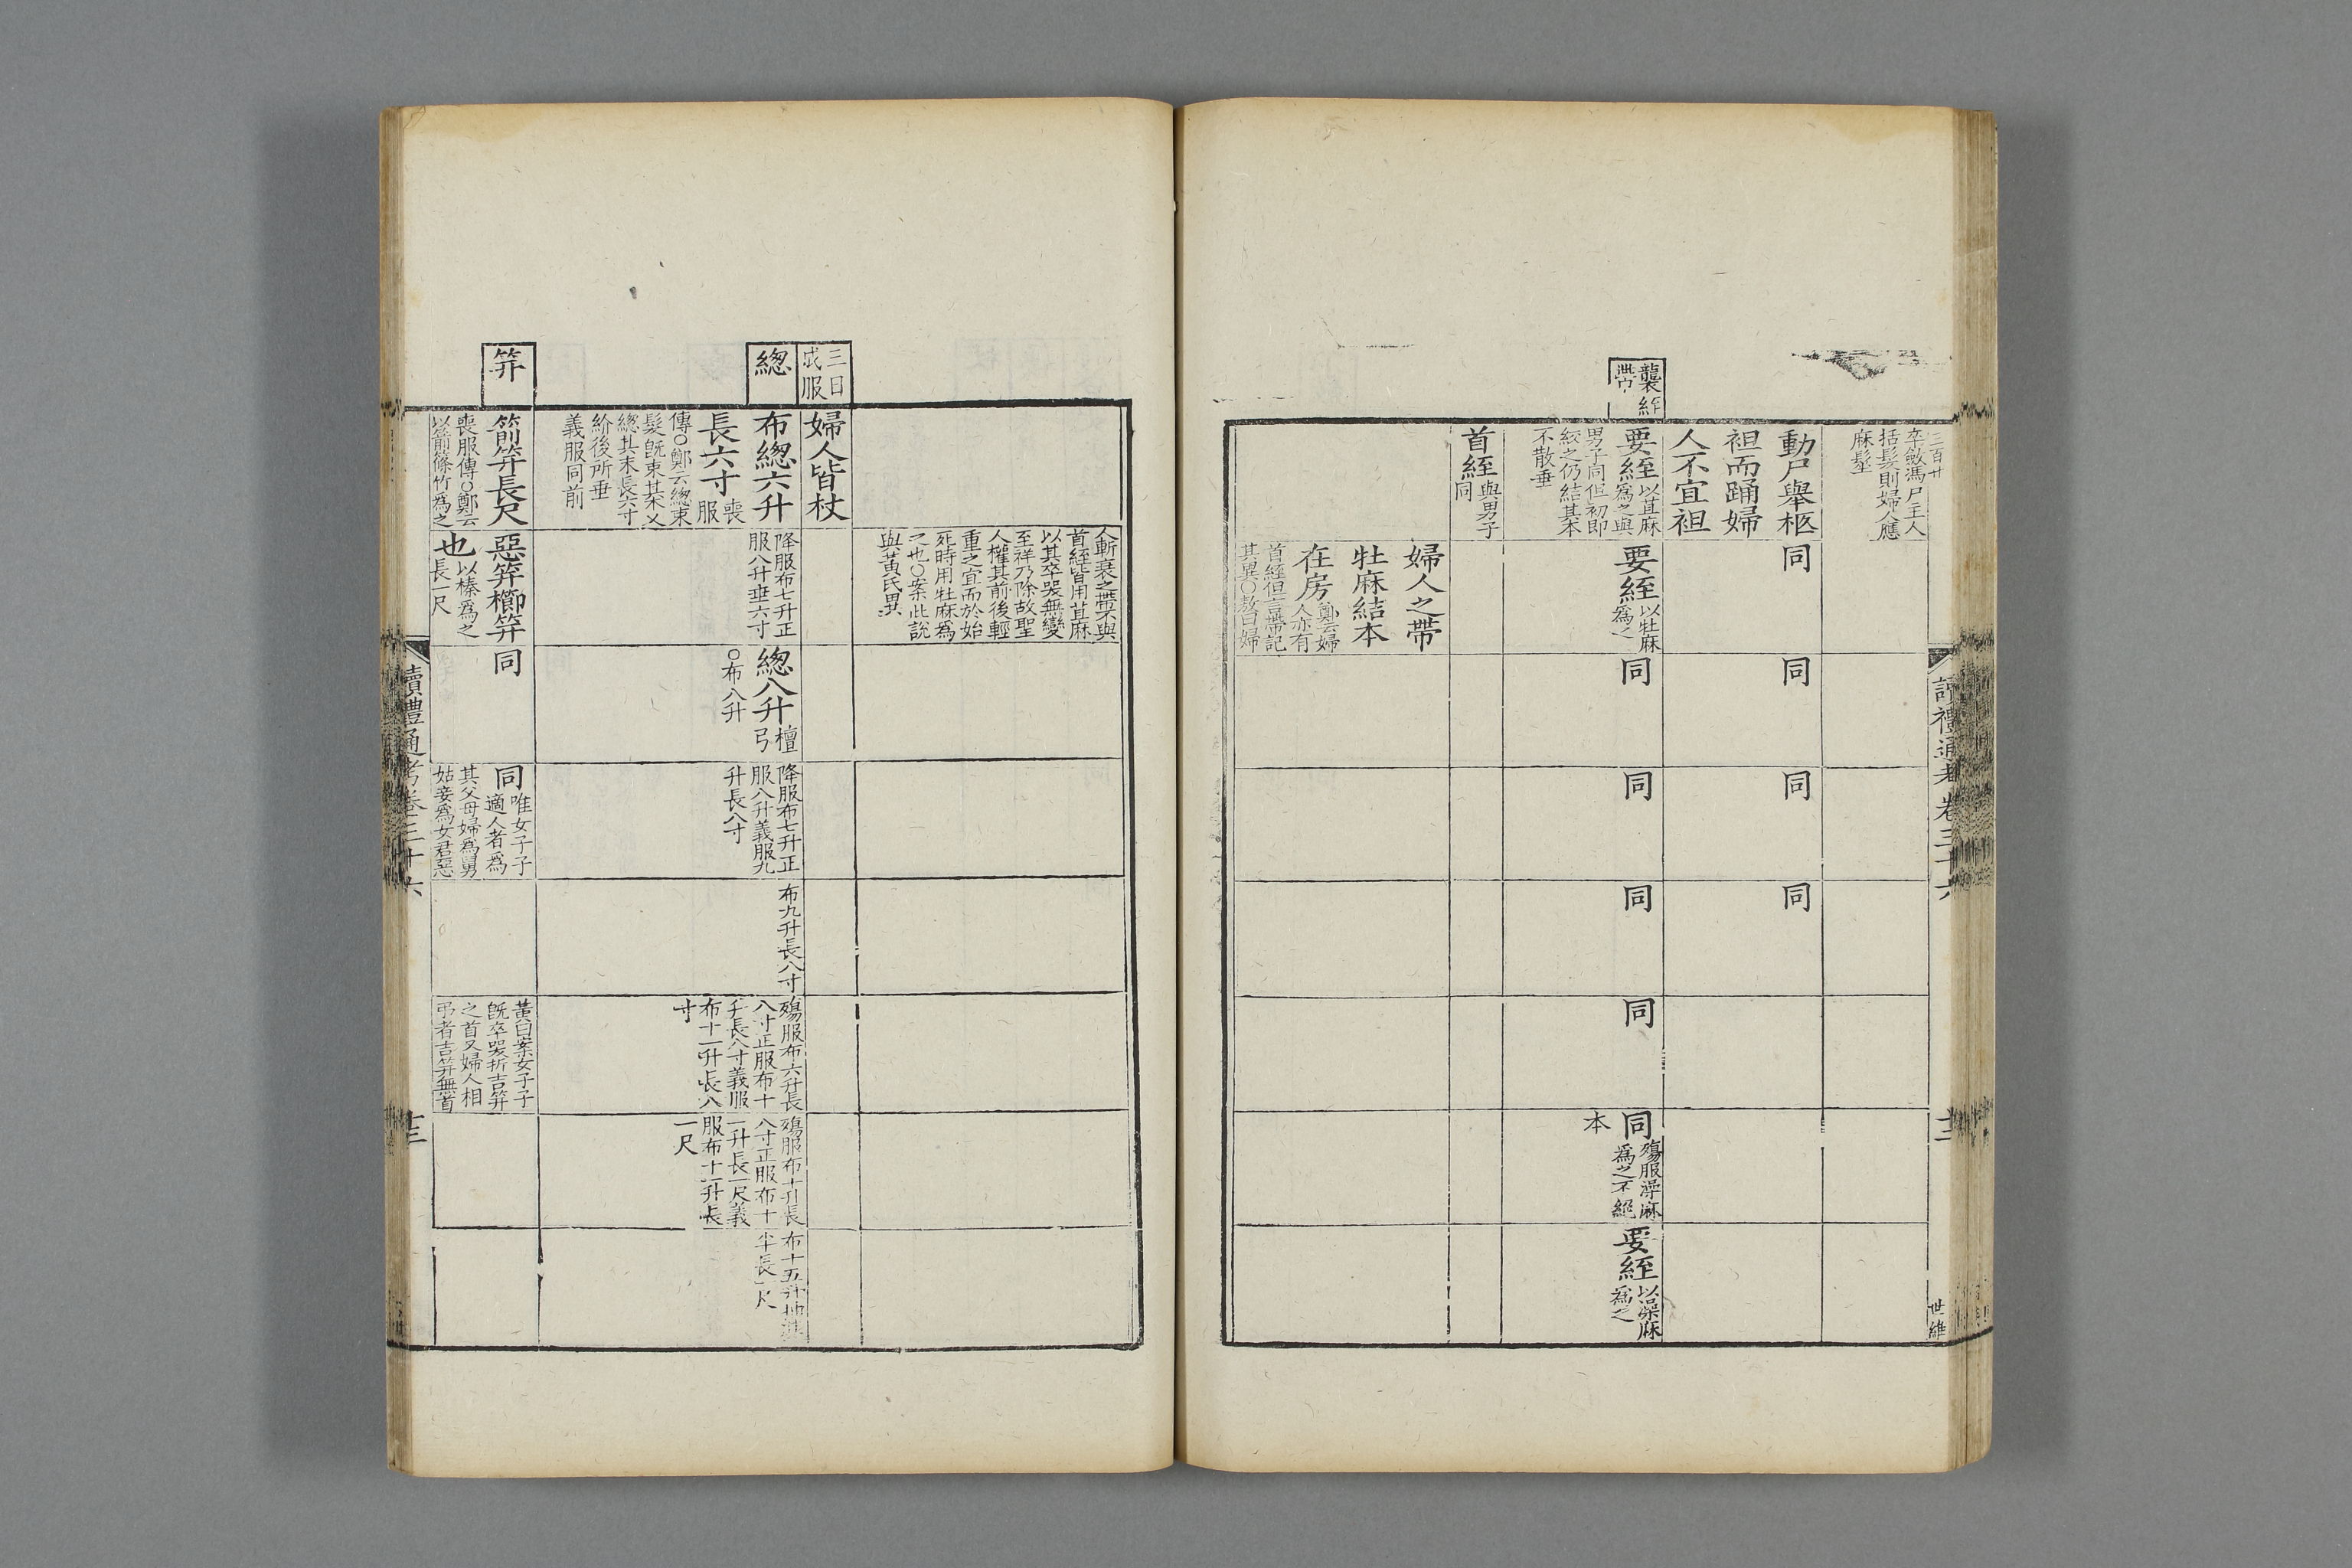 三百廿
卒斂馮尸主人
括髮則婦人應
麻髽
動尸舉柩
袒而踊婦
人不宜袒
同
同
同
同
襲絰
帶
要絰以苴麻
爲之與
男子同但初即
絞之仍結其本
不散垂
要絰以牡麻
爲之
同
同
同
同
同殤服澡麻
爲之不絕
本
要絰以澡麻
爲之
首絰與男子
同
婦人之帶
牡麻結本
在房鄭云婦
人亦有
首絰但言帶記
其異○敖曰婦
讀禮通考卷三十六
十二
世維
人斬衰之帶不與
首絰皆用苴麻
以其卒哭無變
至祥乃除故聖
人權其前後輕
重之宜而於始
死時用牡麻爲
之也○案此說
與黃氏異
三日
成服
婦人皆杖
總
布總六升
長六寸喪
服
傳○鄭云總束
髮旣束其本又
總其末長六寸
紒後所垂
義服同前
降服布七升正
服八升垂六寸
總八升檀
弓
○布八升
降服布七升正
服八升義服九
升長八寸
布九升長八寸
殤服布六升長
八寸正服布十
升長八寸義服
布十一升長八
寸
殤服布十升長
八寸正服布十
一升長一尺義
服布十二升長
一尺
布十五升抽其
半長一尺
笄
箭笄長尺
喪服傳○鄭云
以箭篠竹爲之
惡笄櫛笄
也以榛爲之
長一尺
同
同唯女子子
適人者爲
其父母婦爲舅
姑妾爲女君惡
黃曰案女子子
旣卒哭折吉笄
之首又婦人相
弔者吉笄無首
讀禮通考卷三十六
十三